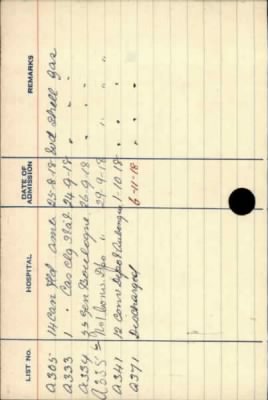 LIST No. HOSPITAL DATE OF ADMISSION REMARKS
a305 14 Can Fld amb. 25-8-18 Wd Shell Gas
a333 1 . Cas Clg Stat 24-9-18 " " "
a334 33 Gen Boulogne 26-9-18 " " "
a335 No 1 Conv. Depo " 29-9-18 " " "
a341 12 Conv Depot Aubengue 1-10-18 " " "
a371 Discharged 6-11-18 " " "